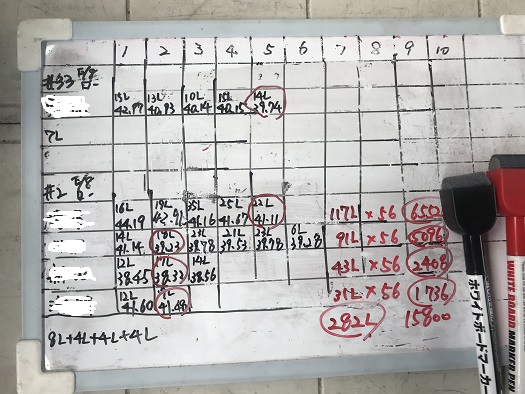 1 2 3 4 5 6 7 8 9 10
#33 5/8
15L 13L 10L 15L 14L
42.77 40.93 40.14 40.15 39.94
7L
#2 5/8
16L 19L 35L 25L 22L
44.19 41.67 41.11 117L × 56 6552
14L 18L 21L 23L 6L
41.14 39.23 39.78 39.53 39.98 39.28 91L × 56 5096
12L 17L 14L
38.45 38.33 38.56 43L × 56 2408
12L
41.60 41.49 31L × 56 1736
282L 15800
8L+4L+4L+4L
ホワイトボードマーカー
WHITE BOARD MARKER PEN